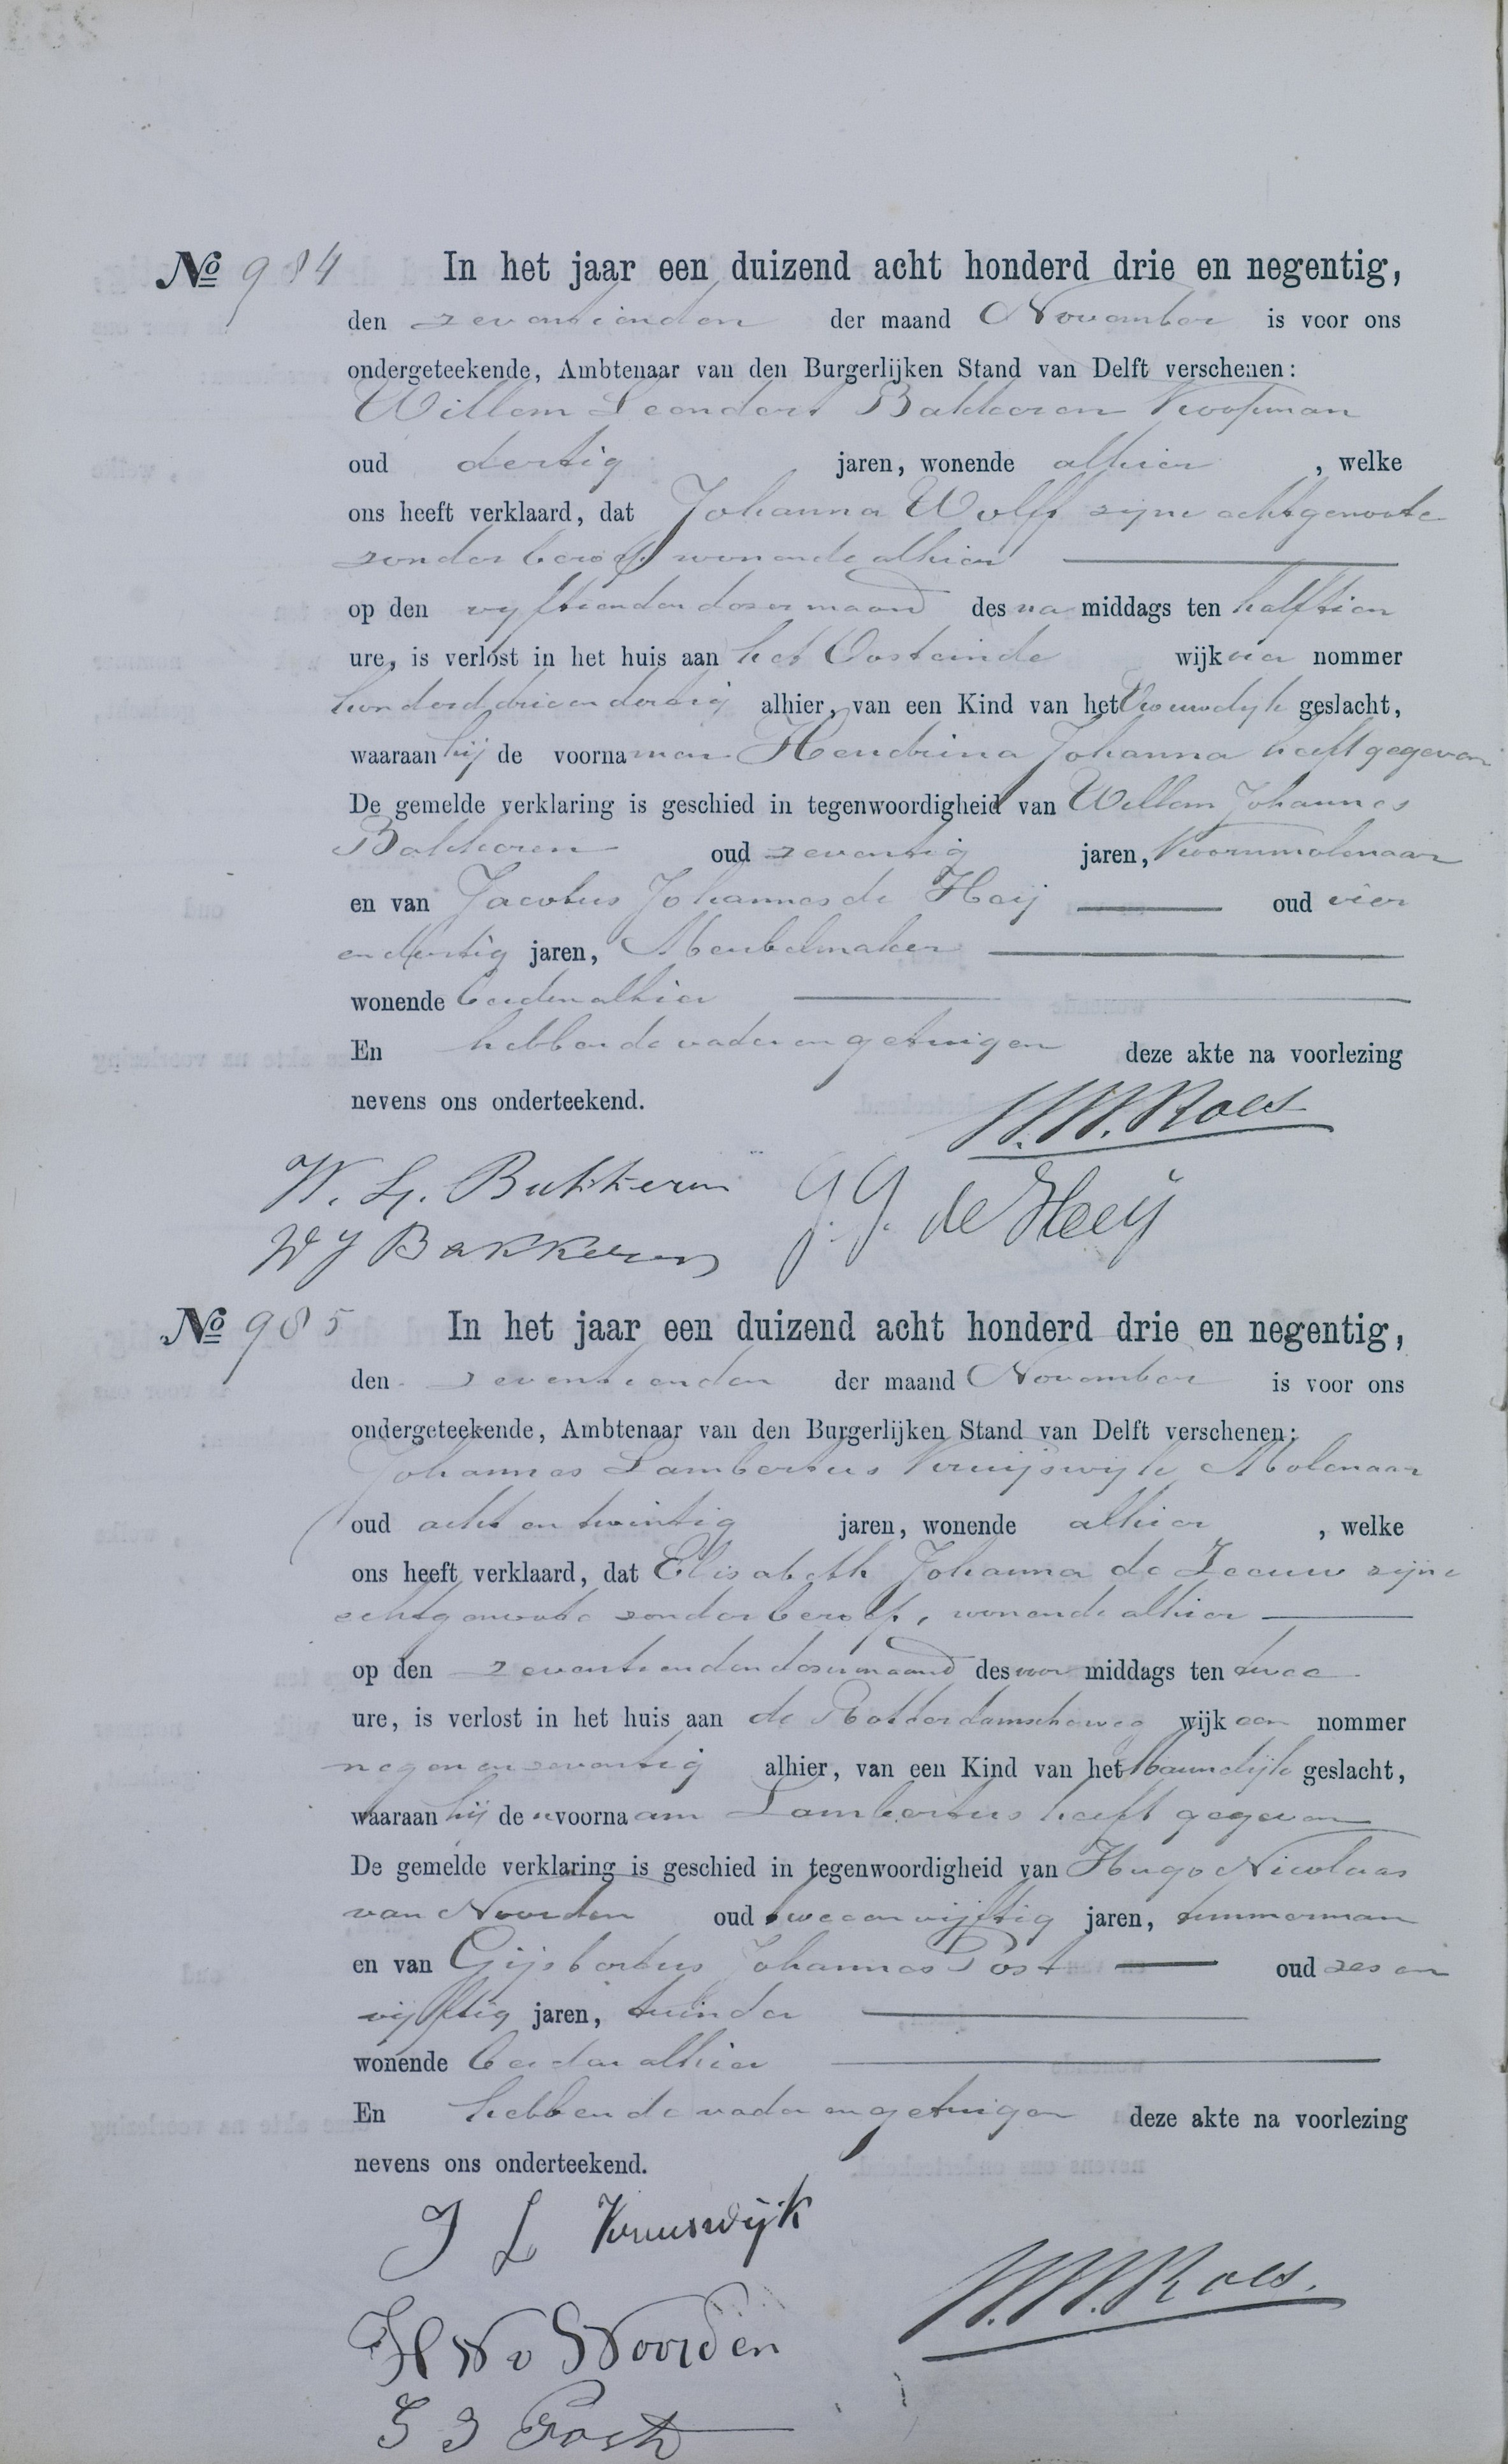 No 984 In het jaar een duizend acht honderd drie en negentig,
den zeventienden der maand November is voor ons
ondergeteekende, Ambtenaar van den Burgerlijken Stand van Delft verschenen:
Willem Leendert Bakkeren Koopman
oud dertig jaren, wonende alhier, welke
ons heeft verklaard, dat Johanna Wolff zijne echtgenoote
zonder beroep, wonende alhier
op den vijftienden dezer maand des namiddags ten half tien
ure, is verlost in het huis aan het Oosteinde wijk vier nommer
honderd drie en dertig alhier, van een Kind van het Vrouwelijk geslacht,
waaraan hij de voornamen Hendrina Johanna heeft gegeven
De gemelde verklaring is geschied in tegenwoordigheid van Willem Johannes
Bakkeren oud zeventig jaren, Koornmolenaar
en van Jacobus Johannes de Heij oud vier
en dertig jaren, Meubelmaker
wonende beiden alhier
En hebben de vader en getuigen deze akte na voorlezing
nevens ons onderteekend.
Roes
W. L. Bakkeren J. J. de Heij
W J Bakkeren
No 985 In het jaar een duizend acht honderd drie en negentig,
den zeventienden der maand November is voor ons
ondergeteekende, Ambtenaar van den Burgerlijken Stand van Delft verschenen:
Johannes Lambertus Kruijswijk Molenaar
oud acht en twintig jaren, wonende alhier, welke
ons heeft verklaard, dat Elisabeth Johanna de Leeuw zijne
echtgenoote zonder beroep, wonende alhier
op den zeventienden dezer maand des voor middags ten twee
ure, is verlost in het huis aan de Rotterdamscheweg wijk een nommer
negen en zeventig alhier, van een Kind van het Mannelijk geslacht,
waaraan hij de n voornaam Lambertus heeft gegeven
De gemelde verklaring is geschied in tegenwoordigheid van Hugo Nicolaas
van Noorden oud twee en vijftig jaren, timmerman
en van Gijsbertus Johannes Post oud zes en
vijftig jaren, tuinder
wonende beiden alhier
En hebben de vader en getuigen deze akte na voorlezing
nevens ons onderteekend.
J L Kruiswijk
Roes.
H N v Noorden
G J Post